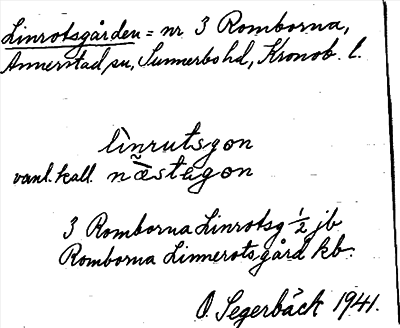 Linrotsgården = nr 3 Romborna,
Annerstad sn, Sunnerbo hd, Kronob. l.
lìnrutsgon
vanl. kall. næ̃stagon
3 Romborna Linrotsg ½ jb
Romborna Linnerotsgård kb.
O. Segerbäck 1941.